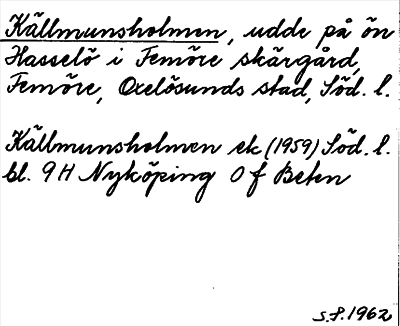 Källmunsholmen, udde på ön
Hasselö i Femöre skärgård,
Femöre, Oxelösunds stad, Söd. l.
Källmunsholmen ek (1959) Söd. l.
bl. 9H Nyköping 0 f Beten
S.P. 1962